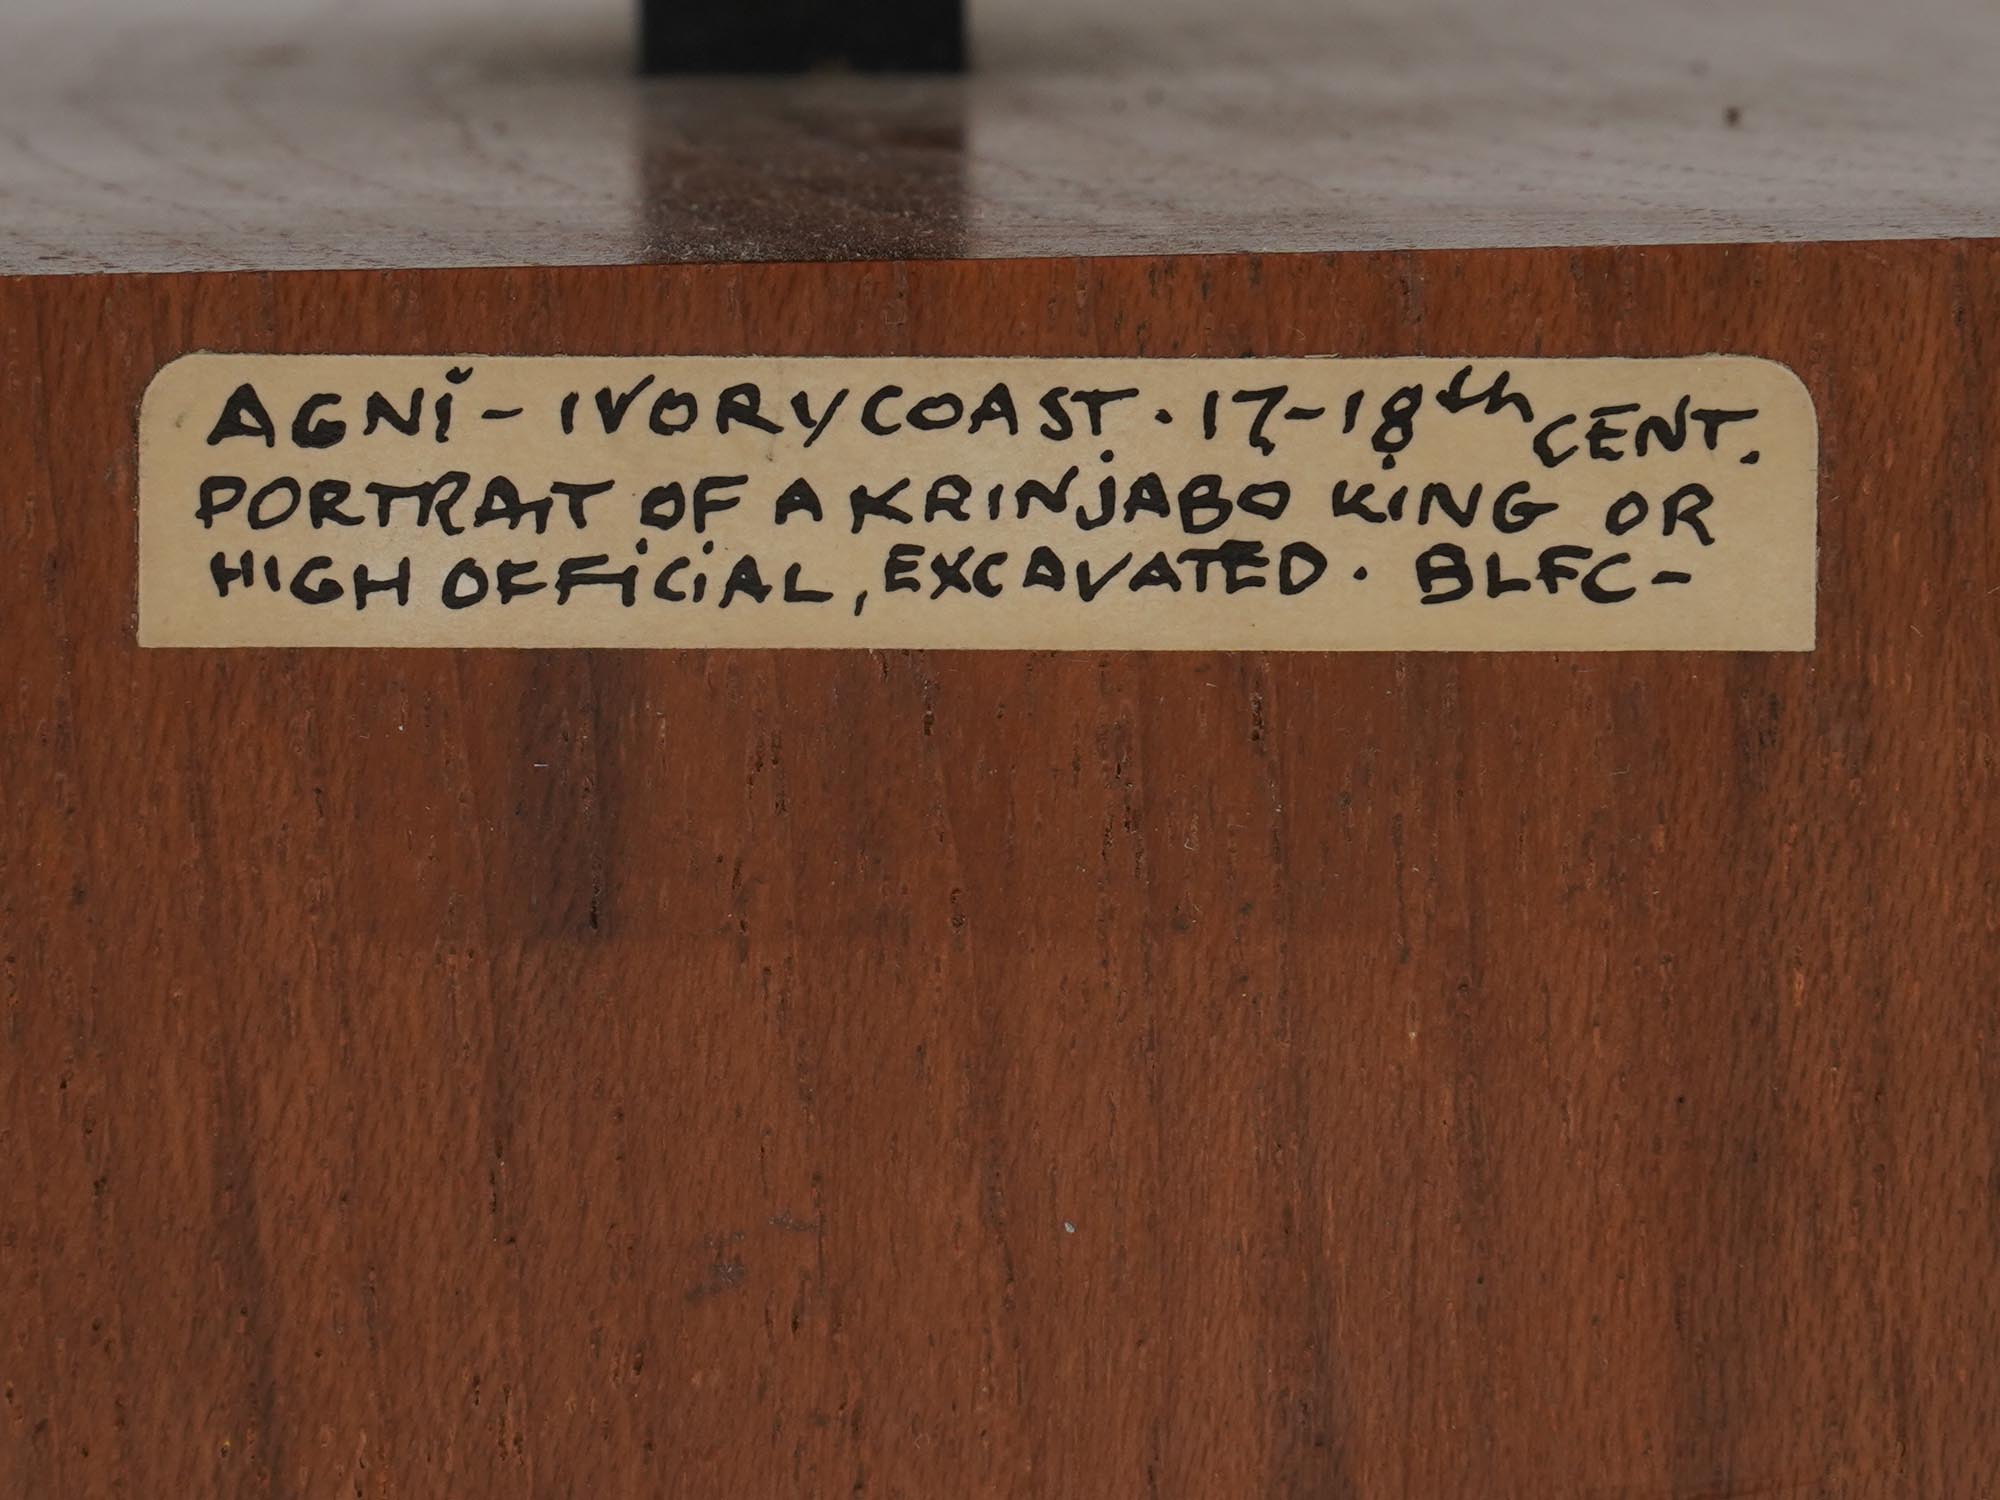 AGNI - IVORY COAST. 17-18th CENT.
PORTRAIT OF A KRINJABO KING OR
HIGH OFFICIAL, EXCAVATED. BLFC-